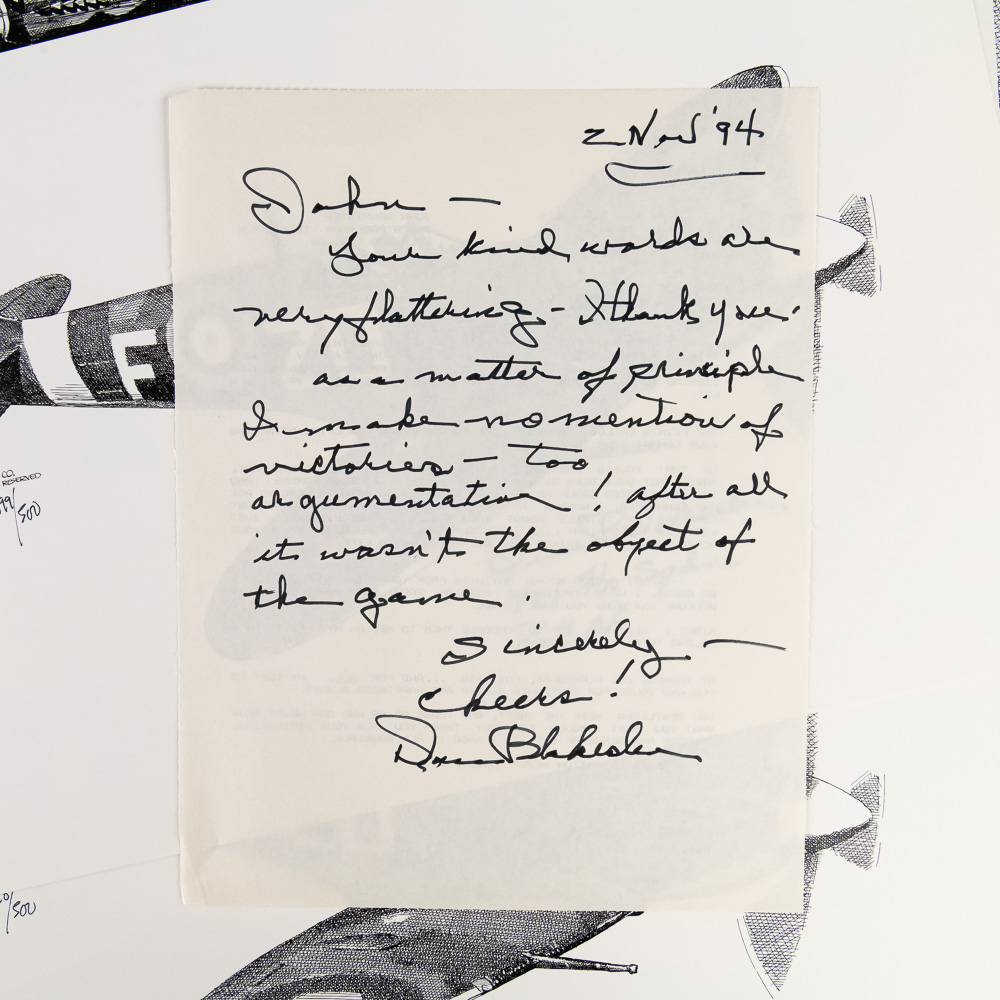 2 Nov '94
John —
Your kind words are
very flattering - I thank you.
as a matter of principle
I make no mention of
victories — too
argumentative ! after all
it wasn't the object of
the game .
Sincerely —
Cheers !
Don Blakeslee
F
CO.
RESERVED
/500
/500